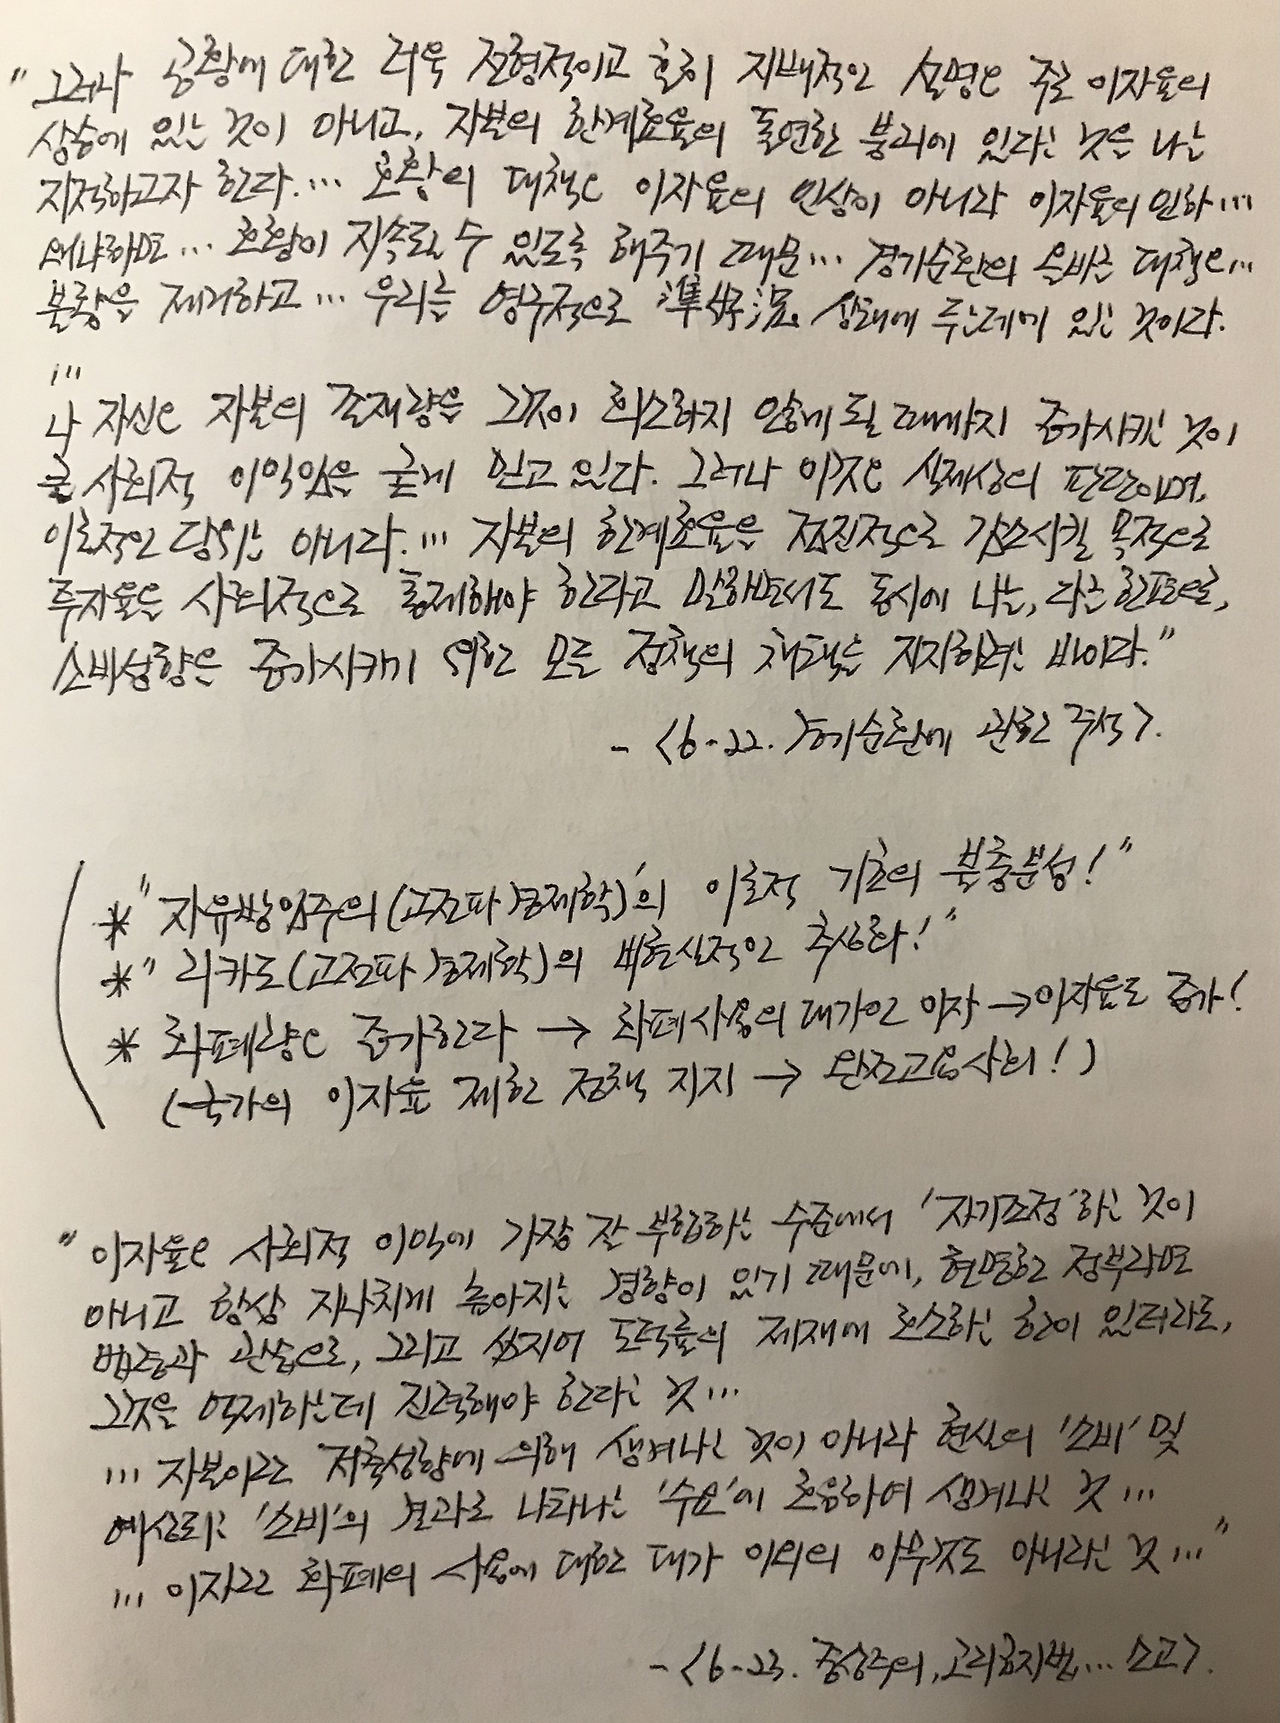 "그러나 공황에 대한 더욱 전형적이고 흔히 지배적인 설명은 주로 이자율의
상승에 있는 것이 아니고, 자본의 한계효율의 돌연한 붕괴에 있다는 것을 나는
지적하고자 한다.... 호황의 대책은 이자율의 인상이 아니라 이자율의 인하...
왜냐하면... 호황이 지속될 수 있도록 해주기 때문... 경기순환의 올바른 대책은...
불황을 제거하고... 우리를 영구적으로 準好況 상태에 두는데에 있는 것이다.
...
나 자신은 자본의 존재량을 그것이 희소하지 않게 될 때까지 증가시키는 것이
큰 사회적 이익임을 굳게 믿고 있다. 그러나 이것은 실제상의 판단이며,
이론적인 당위는 아니다.... 자본의 한계효율을 점진적으로 감소시킬 목적으로
투자율을 사회적으로 통제해야 한다고 말하면서도 동시에 나는, 다른 한편으로,
소비성향을 증가시키기 위한 모든 정책의 채택을 지지하려는 바이다."
- <6-22. 경기순환에 관한 주석>.
* "자유방임주의(고전파 경제학)의 이론적 기초의 불충분성!"
* "리카도(고전파 경제학)의 비현실적인 추상화!"
* 화폐량은 증가한다 → 화폐사용의 대가인 이자 → 이자율도 증가!
(국가의 이자율 제한 정책 지지 → 완전고용사회!)
"이자율은 사회적 이익에 가장 잘 부합하는 수준에서 '자기조정'하는 것이
아니고 항상 지나치게 높아지는 경향이 있기 때문에, 현명한 정부라면
법령과 관습으로, 그리고 심지어 도덕률의 제재에 호소하는 한이 있더라도,
그것을 억제하는데 진력해야 한다는 것...
... 자본이란 저축성향에 의해 생겨나는 것이 아니라 현실의 '소비' 및
예상되는 '소비'의 결과로 나타나는 '수요'에 호응하여 생겨나는 것...
... 이자란 화폐의 사용에 대한 대가 이외의 아무것도 아니라는 것..."
- <6-23. 중상주의, 고리금지법,... 소고>.